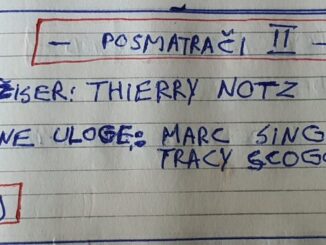 — POSMATRAČI II —
ŽISER: THIERRY NOTZ
NE ULOGE: MARC SING
TRACY SCOGG